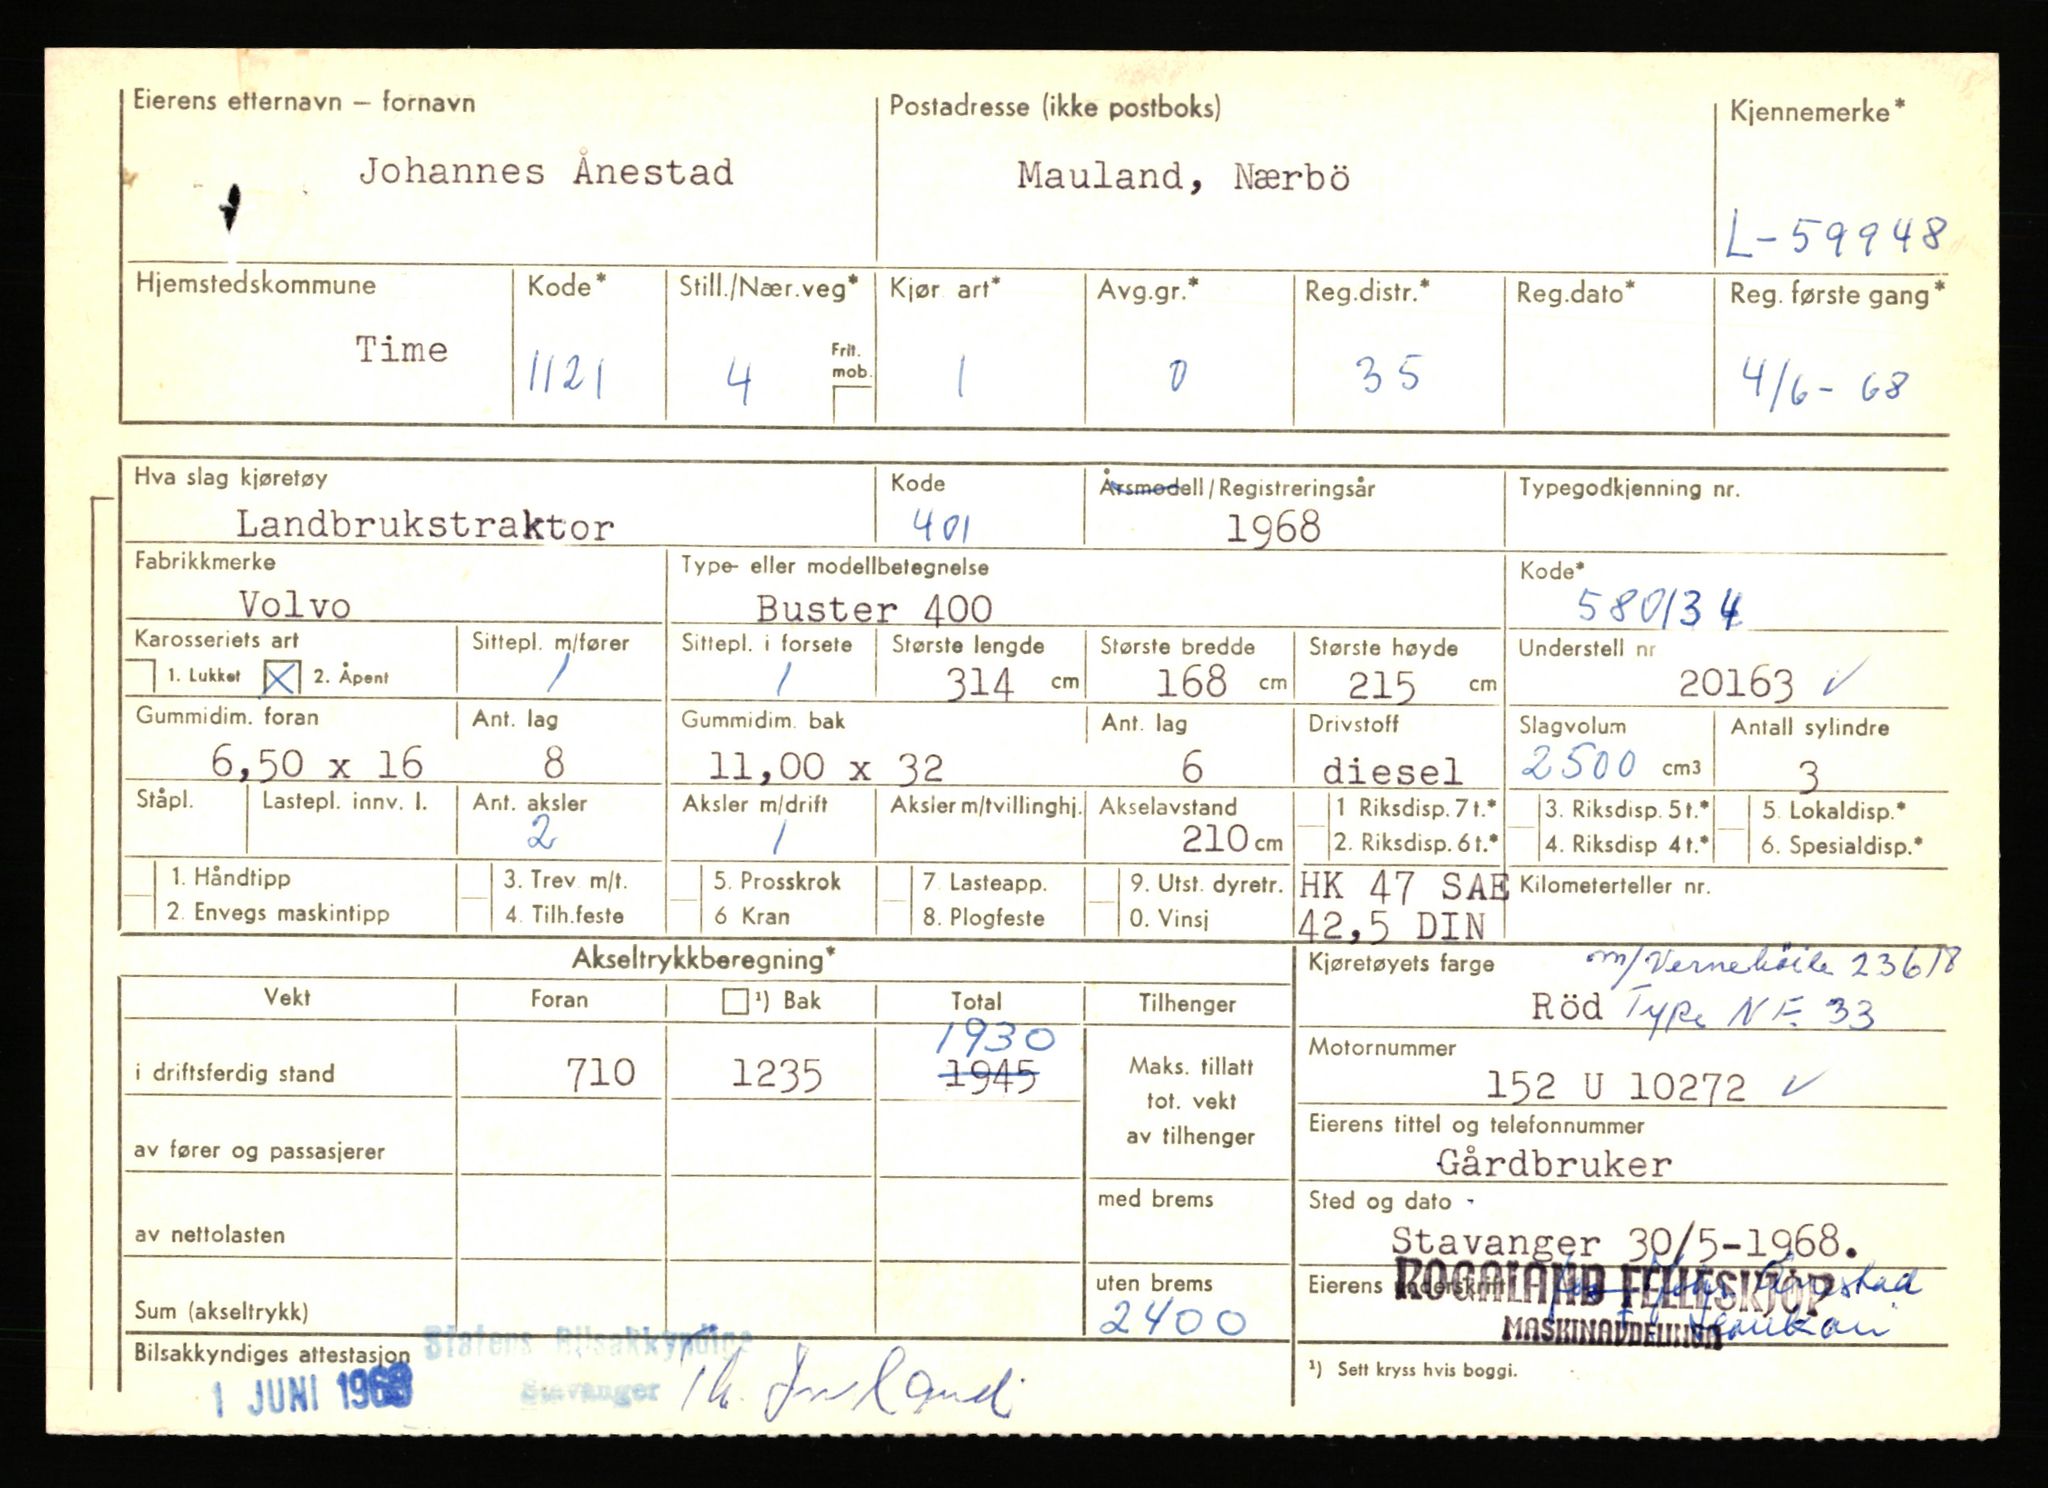 Eierens etternavn — fornavn Postadresse (ikke postboks) Kjennemerke*
Johannes Ånestad Mauland, Nærbö
L-59948
Hjemstedskommune Kode* Still./Nær.veg* Kjør art* Avg.gr.* Reg.distr.* Reg.dato* Reg. første gang*
Time 1121 4 Frit. mob. 1 0 35 4/6-68
Hva slag kjøretøy Kode Årsmodell/Registreringsår Typegodkjenning nr.
Landbrukstraktor 401 1968
Fabrikkmerke Type- eller modellbetegnelse Kode*
Volvo Buster 400 580134
Karosseriets art Sittepl. m/fører Sittepl. i forsete Største lengde Største bredde Største høyde Understell nr
1. Lukket X 2. Åpent 1 1 314 cm 168 cm 215 cm 20163 ✓
Gummidim. foran Ant. lag Gummidim. bak Ant. lag Drivstoff Slagvolum Antall sylindre
6,50 x 16 8 11,00 x 32 6 diesel 2500 cm3 3
Ståpl. Lastepl. innv. l. Ant. aksler Aksler m/drift Aksler m/tvillinghj. Akselavstand 1 Riksdisp. 7 t.* 3. Riksdisp. 5 t.* 5. Lokaldisp.*
2 1 210 cm 2. Riksdisp. 6 t.* 4. Riksdisp 4 t.* 6. Spesialdisp.*
1. Håndtipp 3. Trev. m/t. 5. Prosskrok 7. Lasteapp. 9. Utst. dyretr. HK 47 SAE Kilometerteller nr.
2. Envegs maskintipp 4. Tilh.feste 6 Kran 8. Plogfeste 0. Vinsj 42,5 DIN
Akseltrykkberegning* Kjøretøyets farge m/Vernebøile 23618
Vekt Foran ¹) Bak Total Tilhenger Röd Type NF. 33
1930
i driftsferdig stand 710 1235 1945 Maks. tillatt tot. vekt av tilhenger
Motornummer
152 U 10272 ✓
av fører og passasjerer
Eierens tittel og telefonnummer
Gårdbruker
av nettolasten med brems
Sted og dato
Stavanger 30/5-1968.
Sum (akseltrykk) uten brems
2400
Eierens underskrift ROGALAND FELLESKJØP
MASKINAVDELINGA
Ånestad
Bilsakkyndiges attestasjon Statens Bilsakkyndige
1 JUNI 1968 Stavanger Th.
¹) Sett kryss hvis boggi.